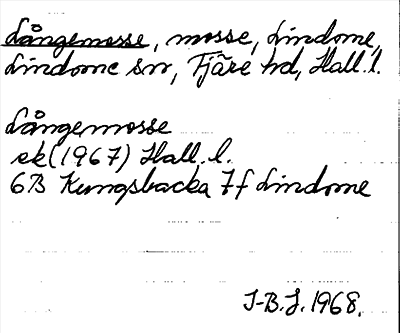 Långemosse, mosse, Lindome,
Lindome sn, Fjäre hd, Hall. l.
Långemosse
ek (1967) Hall. l.
6B Kungsbacka 7f Lindome
J-B. J. 1968.